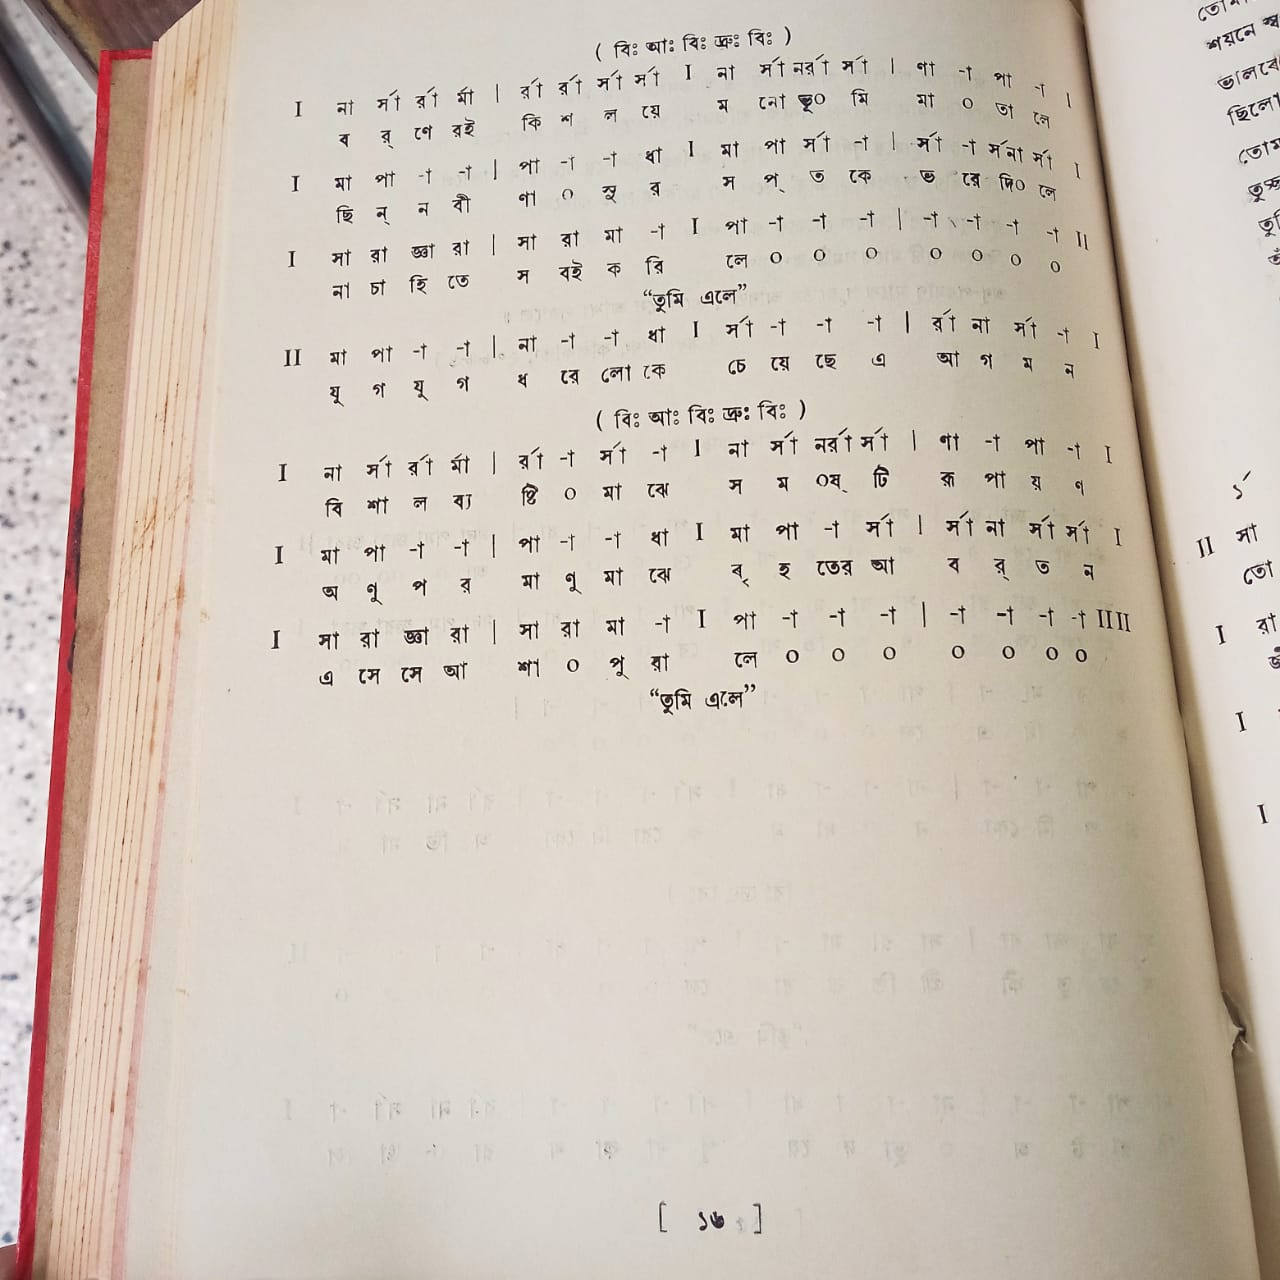 ( বিঃ আঃ বিঃ দ্রুঃ বিঃ )
I না র্সা র্রা র্মা | র্রা র্রা র্সা র্সা I না র্সা নর্রা র্সা | ণা -া পা -া |
ব র্ ণে রই কি শ ল য়ে ম নো ভূ০ মি মা ০ তা লে
I মা পা -া -া | পা -া -া ধা I মা পা র্সা -া | র্সা -া র্সনা র্সা I
ছি ন্ ন বী ণা ০ সু র স প্ ত কে ভ রে দি০ লে
I সা রা জ্ঞা রা | সা রা মা -া I পা -া -া -া | -া -া -া -া II
না চা হি তে স বই ক রি লে ০ ০ ০ ০ ০ ০ ০
“তুমি এলে”
II মা পা -া -া | না -া -া ধা I র্সা -া -া -া | র্রা না র্সা -া I
যু গ যু গ ধ রে লো কে চে য়ে ছে এ আ গ ম ন
( বিঃ আঃ বিঃ দ্রুঃ বিঃ )
I না র্সা র্রা র্মা | র্রা -া র্সা -া I না র্সা নর্রা র্সা | ণা -া পা -া I
বি শা ল ব্য ষ্টি ০ মা ঝে স ম ০ষ্ টি রূ পা য় ণ
I মা পা -া -া | পা -া -া ধা I মা পা -া র্সা | র্সা না র্সা র্সা I
অ ণু প র মা ণু মা ঝে বৃ হ তের আ ব র্ ত ন
I সা রা জ্ঞা রা | সা রা মা -া I পা -া -া -া | -া -া -া -া IIII
এ সে সে আ শা ০ পূ রা লে ০ ০ ০ ০ ০ ০ ০
“তুমি এলে”
[ ১৬ ]
শয়নে
ছিলো
II সা
তো
I রা
I
I